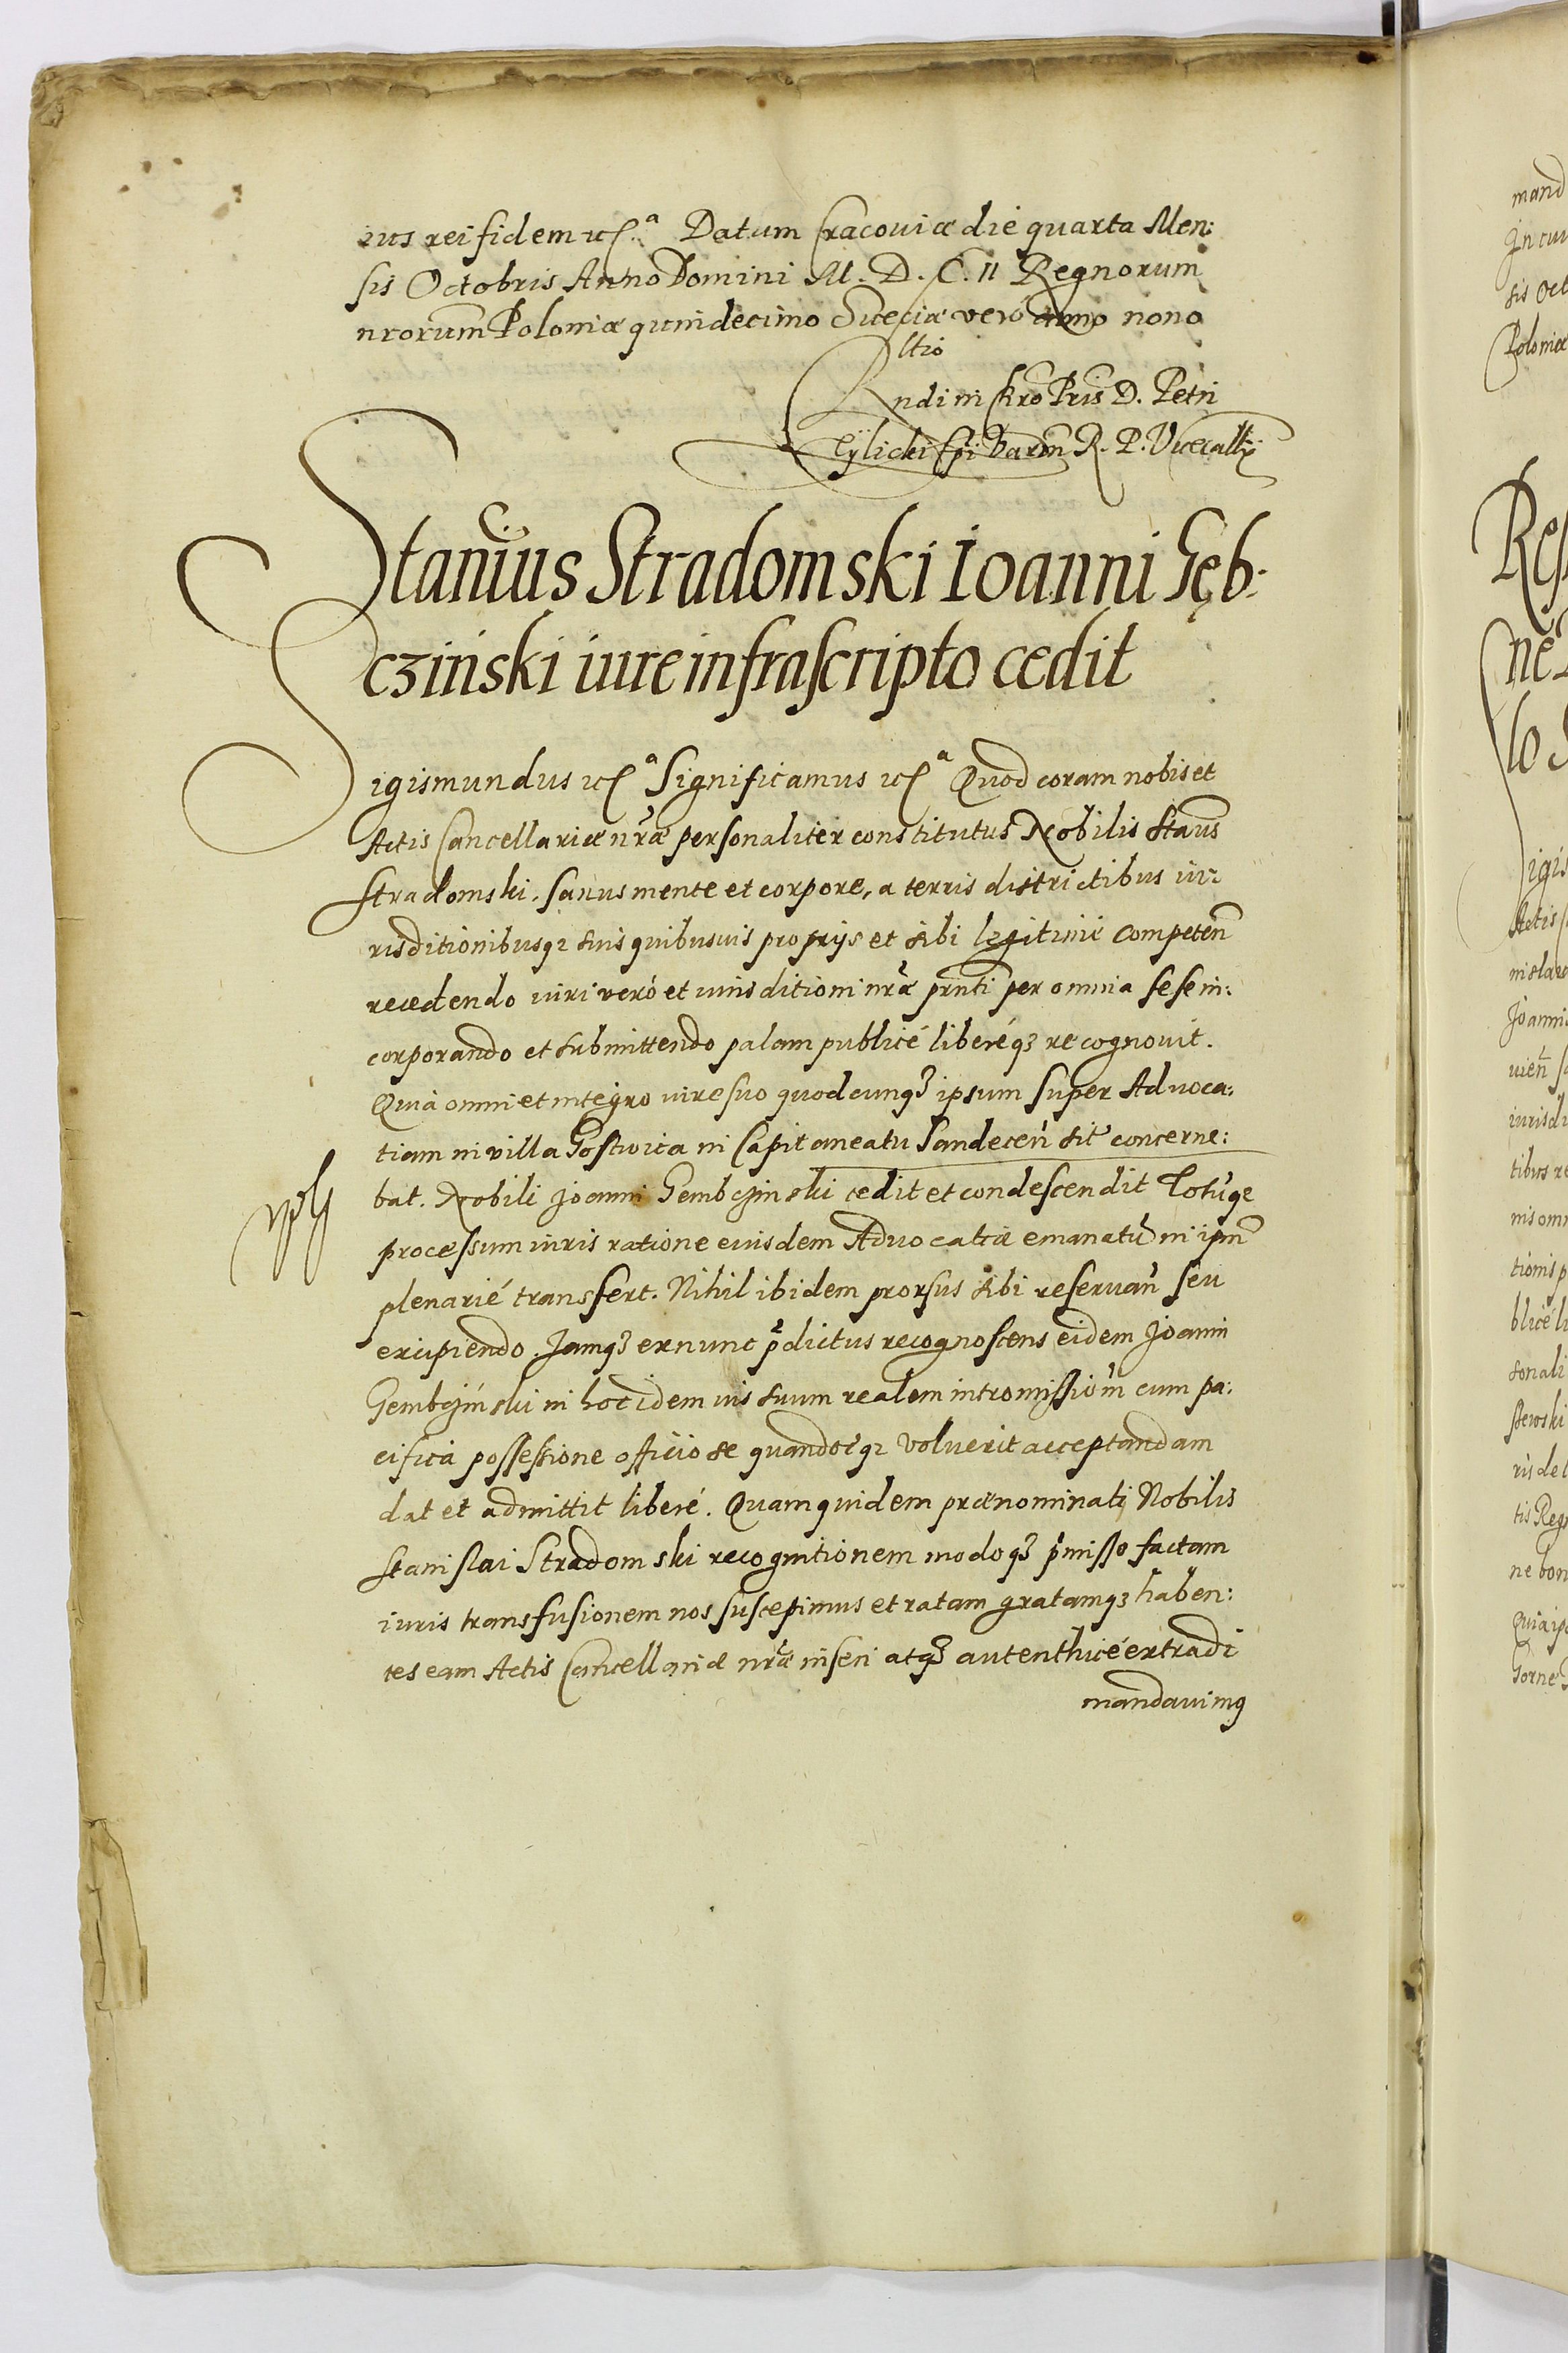 ius rei fidem etc.ª Datum Cracoviæ die quarta Men:
sis Octobris Anno Domini M. D. C. II Regnorum
nrorum Poloniæ quindecimo Sueciæ verò anno nono
ltio
Rndi in Chro Pris D. Petri
Tÿlicki Epi Varm R. P. Vicecally
Stanius Stradomski Ioanni Gęb:
cziński iure infrascripto cedit
Sigismundus etc.ª Significamus etc.ª Quod coram nobis et
Actis Cancellariæ nræ personaliter constitutus Nobilis Staus
Stradomski. sanus mente et corpore, a terris districtibus iu:
risditionibusq; suis quibusuis proprijs et sibi legitimè competen
recedendo iuri verò et iurisditioni nræ prnti per omnia sese in:
corporando et submittendo palam publicé liberéq; recognouit.
Quia omni et integro iure suo quodcunq; ipsum super Advoca:
tiam in villa Gostwica in Capitaneatu Sandecen sit concerne:
bat. Nobili Joanni Gembczinski cedit et condescendit Totuqe
processum iuris ratione eiusdem Aduocatiæ emanatu in ipm
plenarié transfert. Nihil ibidem prorsus sibi reseruan seu
excipiendo. Jamq; exnunc pdictus recognoscens eidem Joanni
Gembcziński in hoc idem ius suum realem intromissiom cum pa:
cifica possessione officiose quandocq; voluerit acceptandam
dat et admittit liberé. Quam quidem prænominati Nobilis
Stanislai Stradomski recognitionem modoq; pmisso factam
iuris transfusionem nos suscepimus et ratam gratamq; haben:
tes eam Actis Cancellariæ nræ inseri atq; autenthicé extradi
mandauimq
mand
In cui
sis Oct
Poloniæ
Res
ne
lo
Sigis
Actis
nislao
Joanni
uien
iurisdi
tibus re
nis omn
tionis p
blicé li
sonali
stewski
ris de
tis Reg
ne bon
Quia ip
Gorne